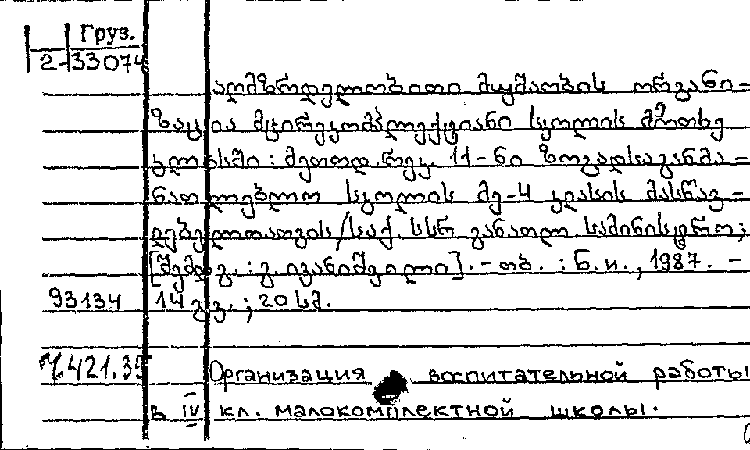 Груз.
2-33074
აღმზრდელობითი მუშაობის ორგანი-
ზაცია მცირეკომპლექტიანი სკოლის მეოთხე
კლასში: მეთოდ. რეკ. 11-ნი ზოგადსაგანმა-
ნათლებლო სკოლის მე-4 კლასის მასწავ-
ლებელთათვის/საქ. სსრ განათლ. სამინისტრო;
[შემდგ.: გ. ივანიშვილი]. - თბ. : ნ. ი., 1987. -
93134 14 გვ. ; 20 სმ.
421.35 Организация воспитательной работы
в IV кл. малокомплектной школы.